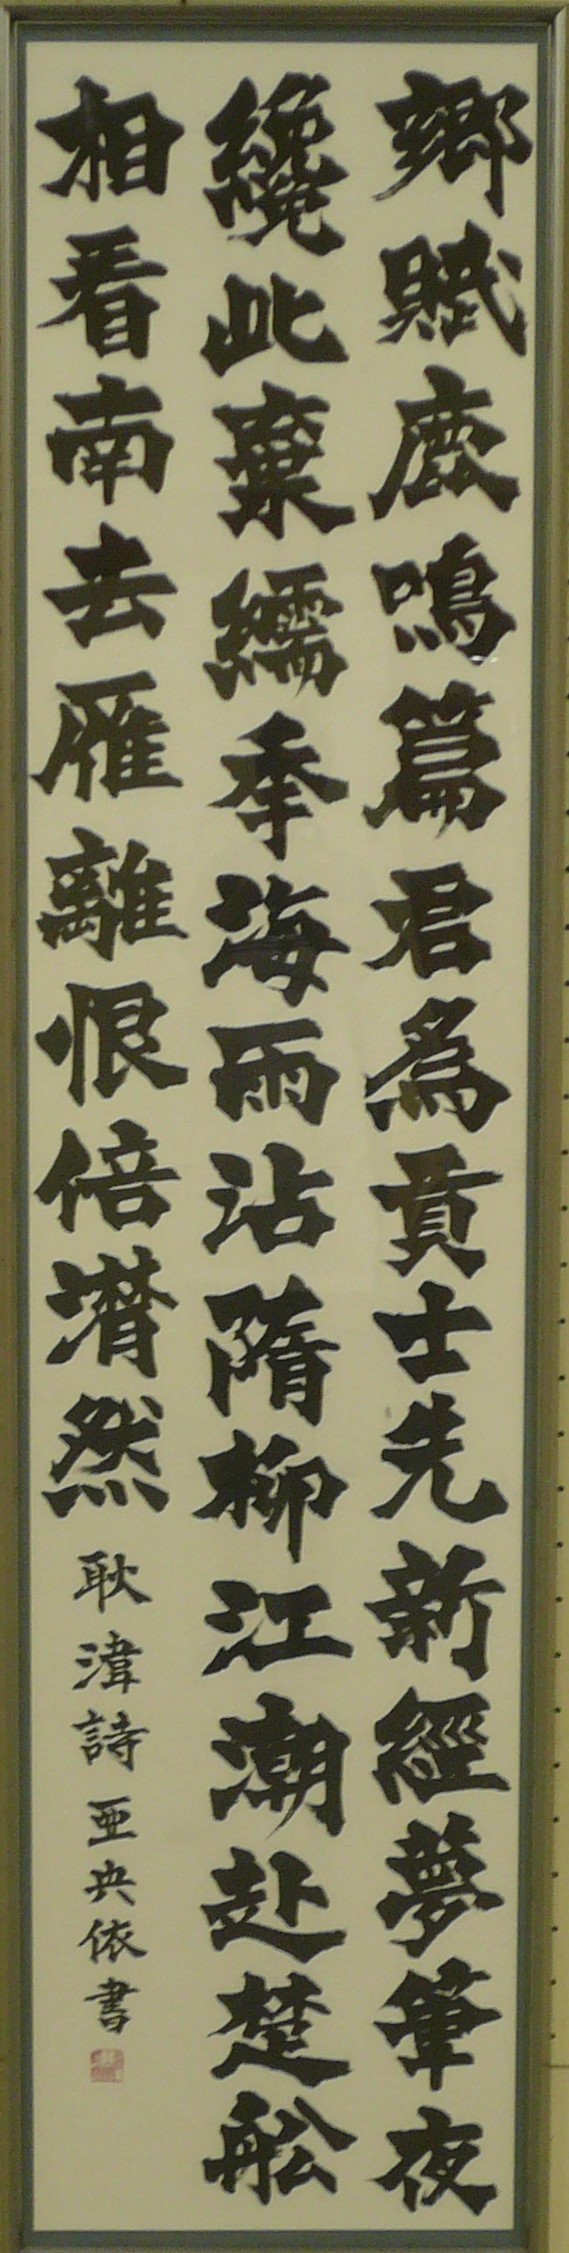 鄉賦鹿鳴篇君為貢士先新經夢筆夜
纔此棄繻年海雨沾隋柳江潮赴楚舩
相看南去雁離恨倍潸然
耿湋詩 亜央依書